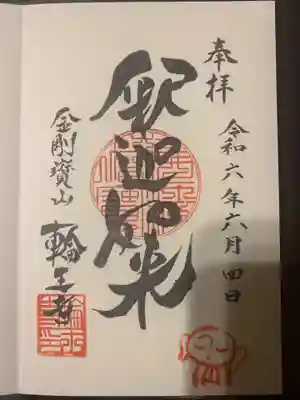 奉拝
令和六年六月四日
釈迦如来
金剛寳山
輪王寺